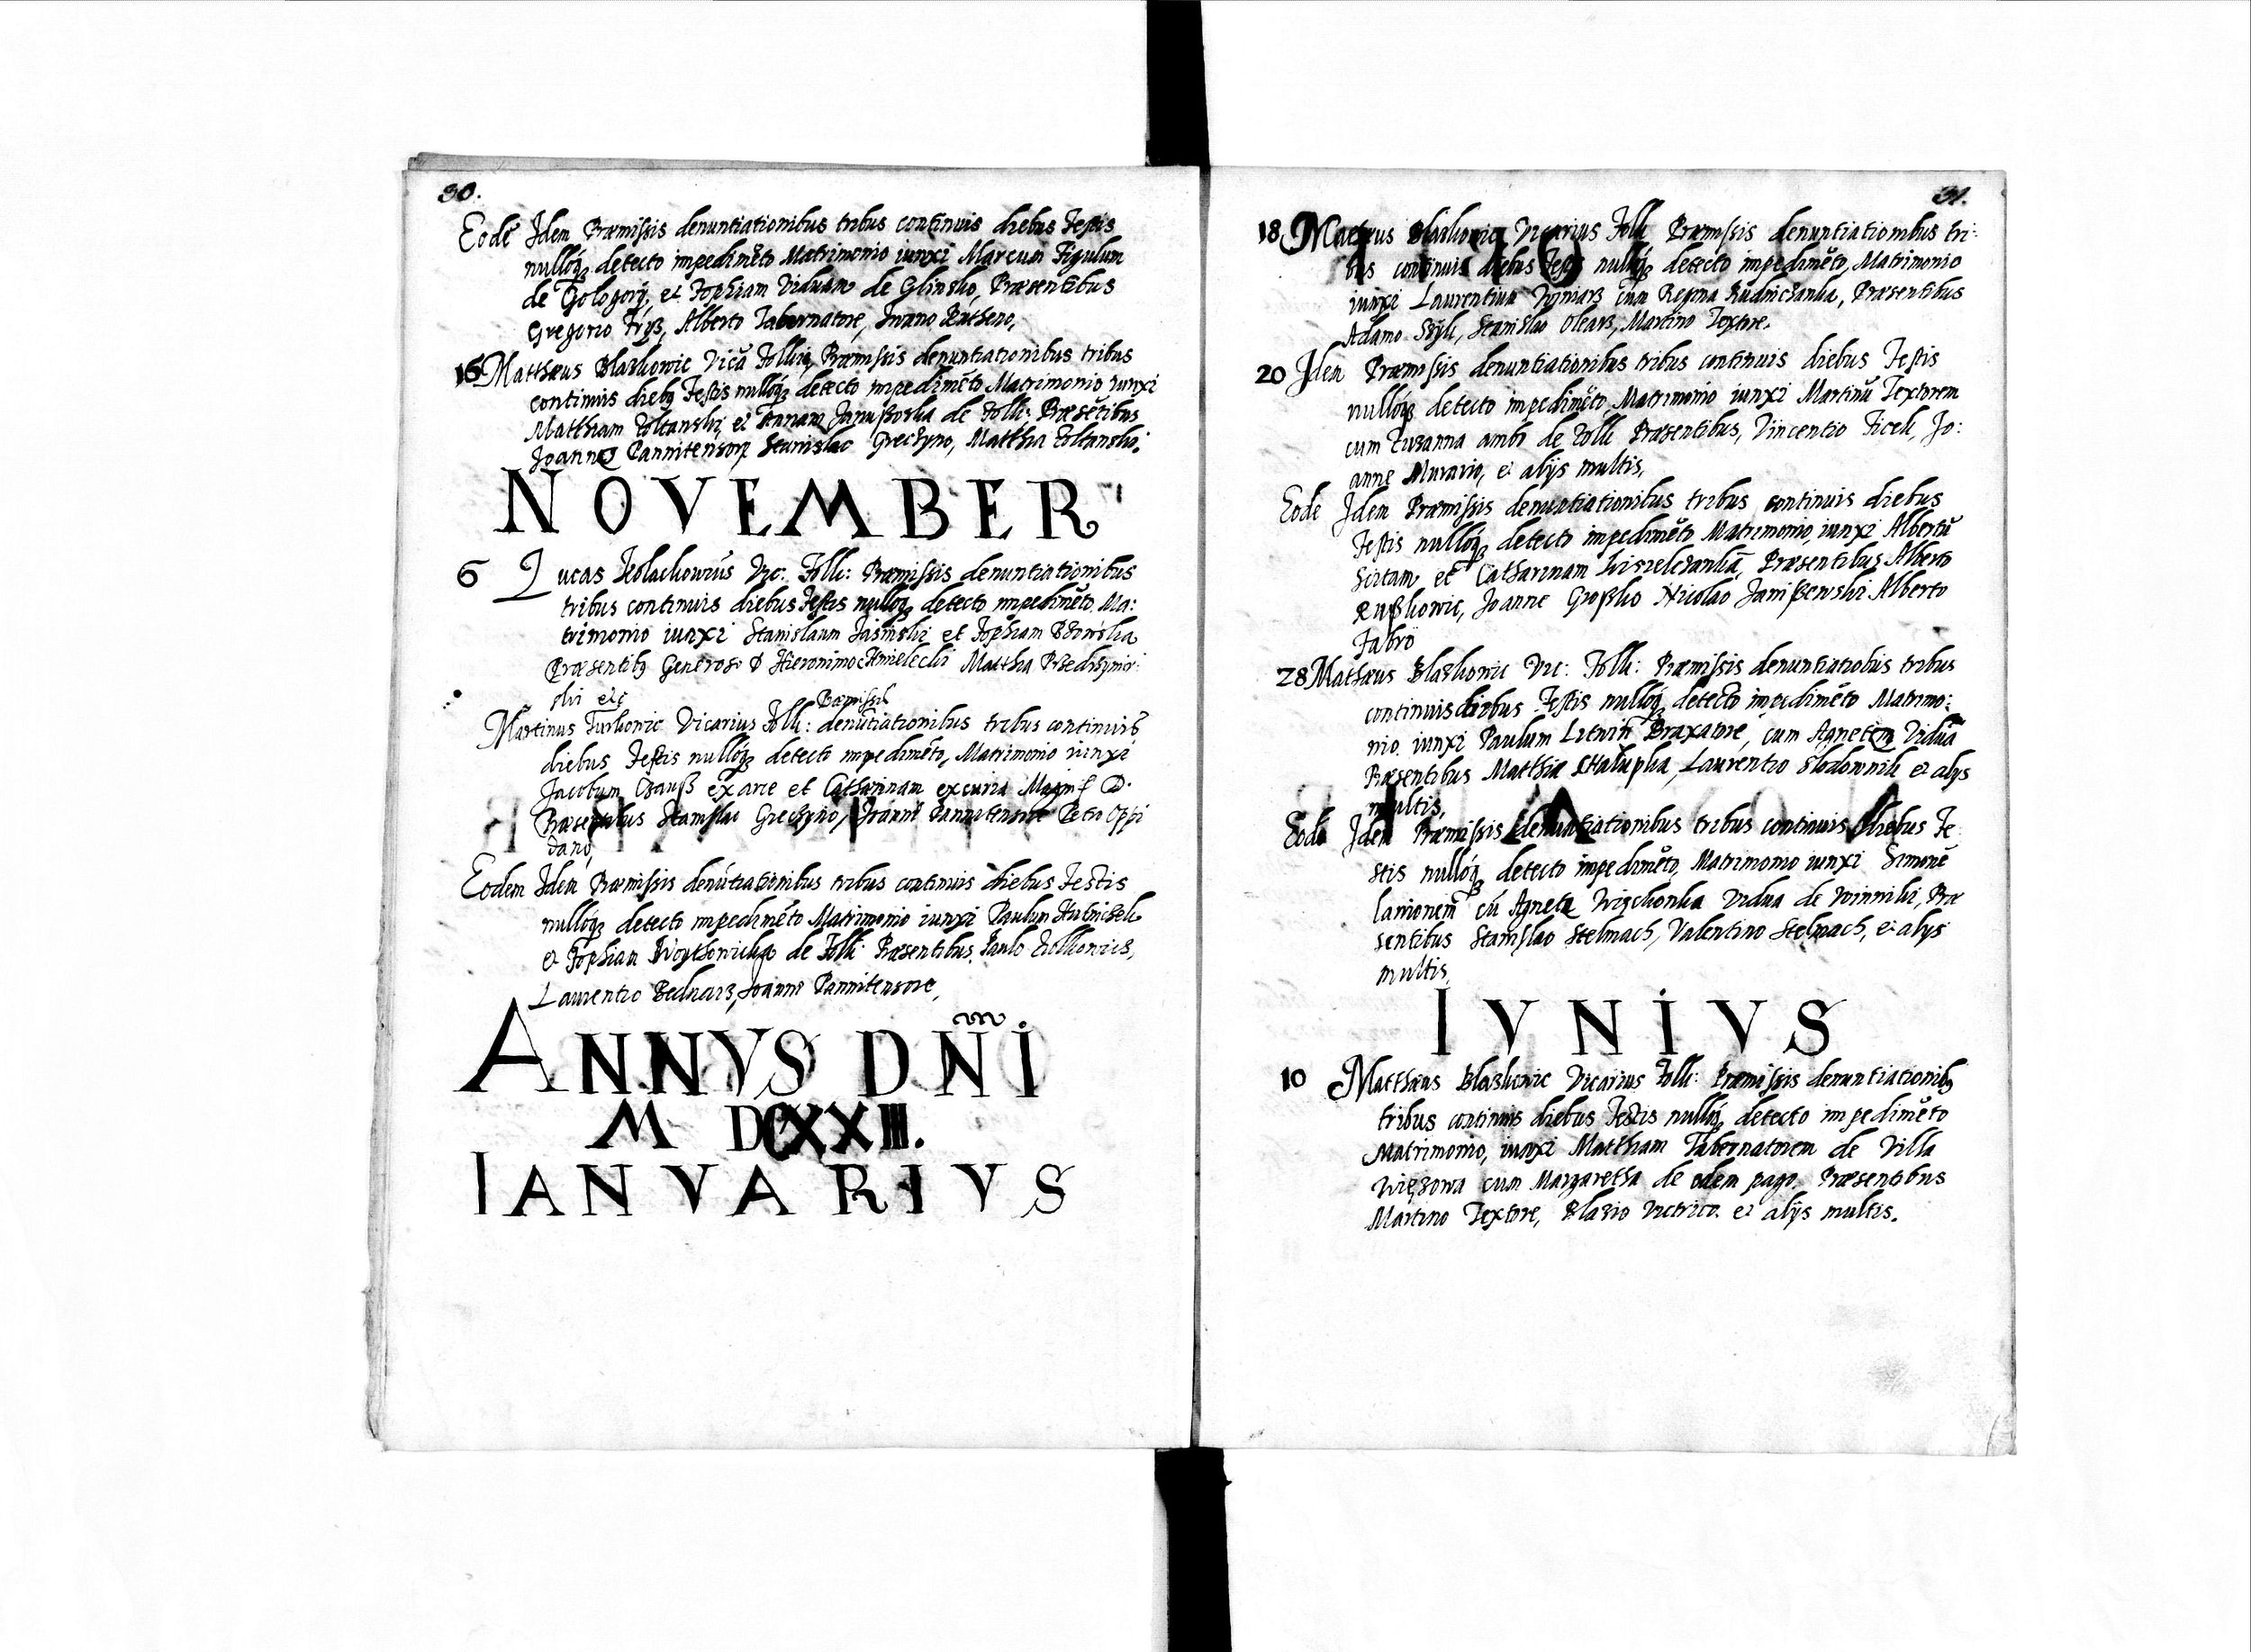 30.
Eodē Idem Præmissis denuntiationibus tribus continuis diebus Festis
nullóq; detecto impedimēto Matrimonio iunxi Marcum Figulum
de Gologorÿ, et Zophiam Viduam de Glinsko, Præsentibus
Gregorio Tryß, Alberto Tabernatore, Iwano Rutheno,
16 Matthæus Blaskowic Vicā Zolkiē, Præmissis denuntiationibus tribus
continuis diebq Festis nullóq; detecto impedimēto Matrimonio iunxi
Matthiam et Annam de Zolk: Præsētibus
Joanne Pannitensore Stanislao Grechyno, Matthia
NOVEMBER
6 Lucas Vic: Zolk: Præmissis denuntiationibus
tribus continuis diebus Festis nullóq; detecto impedimēto Ma:
trimonio iunxi Stanislaum Jasinski et Zophiam
Præsentibq Generoso D Hieronimo Chmielecki Matthia
ski etc
Præmissis
Martinus Vicarius Zolk: denūtiationibus tribus continuis
diebus Festis nullóq; detecto impedimēto, Matrimonio iunxi
Jacobum Czauß ex arce et Catharinam ex curia Magnif D.
Præsentibus Stanislao Grechyno, Joanne Pannitensore Petro Oppi
dano,
Eodem Idem Præmissis denūtiationibus tribus continuis diebus Festis
nullóq; detecto impedimēto Matrimonio iunxi Paulum
et Zophiam de Zolk: Præsentibus, Paulo
Laurentio Bednarz, Joanne Pannitensore,
ANNVS DÑI
M DCXXIII.
IANVARIVS
31.
18 Mathæus Blaskowic Vicarius Zolk, Præmissis denuntiationibus tri:
bus continuis diebus Festis nullóq; detecto impedimēto, Matrimonio
iunxi Laurentium cum Regina Præsentibus
Adamo Stanislao Olearz, Martino Textore.
20 Idem Præmissis denuntiationibus tribus continuis diebus Festis
nullóq; detecto impedimēto, Matrimonio iunxi Martinū Textorem
cum Zuzanna ambo de Zolk Præsentibus, Vincentio Jo:
anne Murario, et alijs multis,
Eode Idem Præmissis denuntiationibus tribus continuis diebus
Festis nullóq; detecto impedimēto Matrimonio iunxi Albertū
et Catharinam Præsentibus Alberto
Joanne Nicolao Alberto
Fabro
28 Mathæus Blaskowic Vic: Zolk: Præmissis denuntiatiobus tribus
continuis diebus Festis nullóq; detecto impedimēto Matrimo:
nio iunxi Paulum Litwin Braxatore, cum Agnetem Viduā
Præsentibus Matthia Chalupka, Laurentio Slodownik et alys
multis,
Eode Idem Præmissis denuntiationibus tribus continuis diebus Fe
stis nullóq; detecto impedimēto, Matrimonio iunxi Simonē
lanionem cū Agneta vidua de Præ
sentibus Stanislao Stelmach, Valentino Stelmach, et alys
multis,
IVNIVS
10 Matthæus Blaskowic Vicarius Zolk: Præmissis denuntiationibq
tribus continuis diebus Festis nullóq; detecto impedimēto
Matrimonio, iunxi Matthiam Tabernatorem de Villa
cum Margaretha de odem pago. Præsentibus
Martino Textore, Blasio Victrico. et alijs multis.